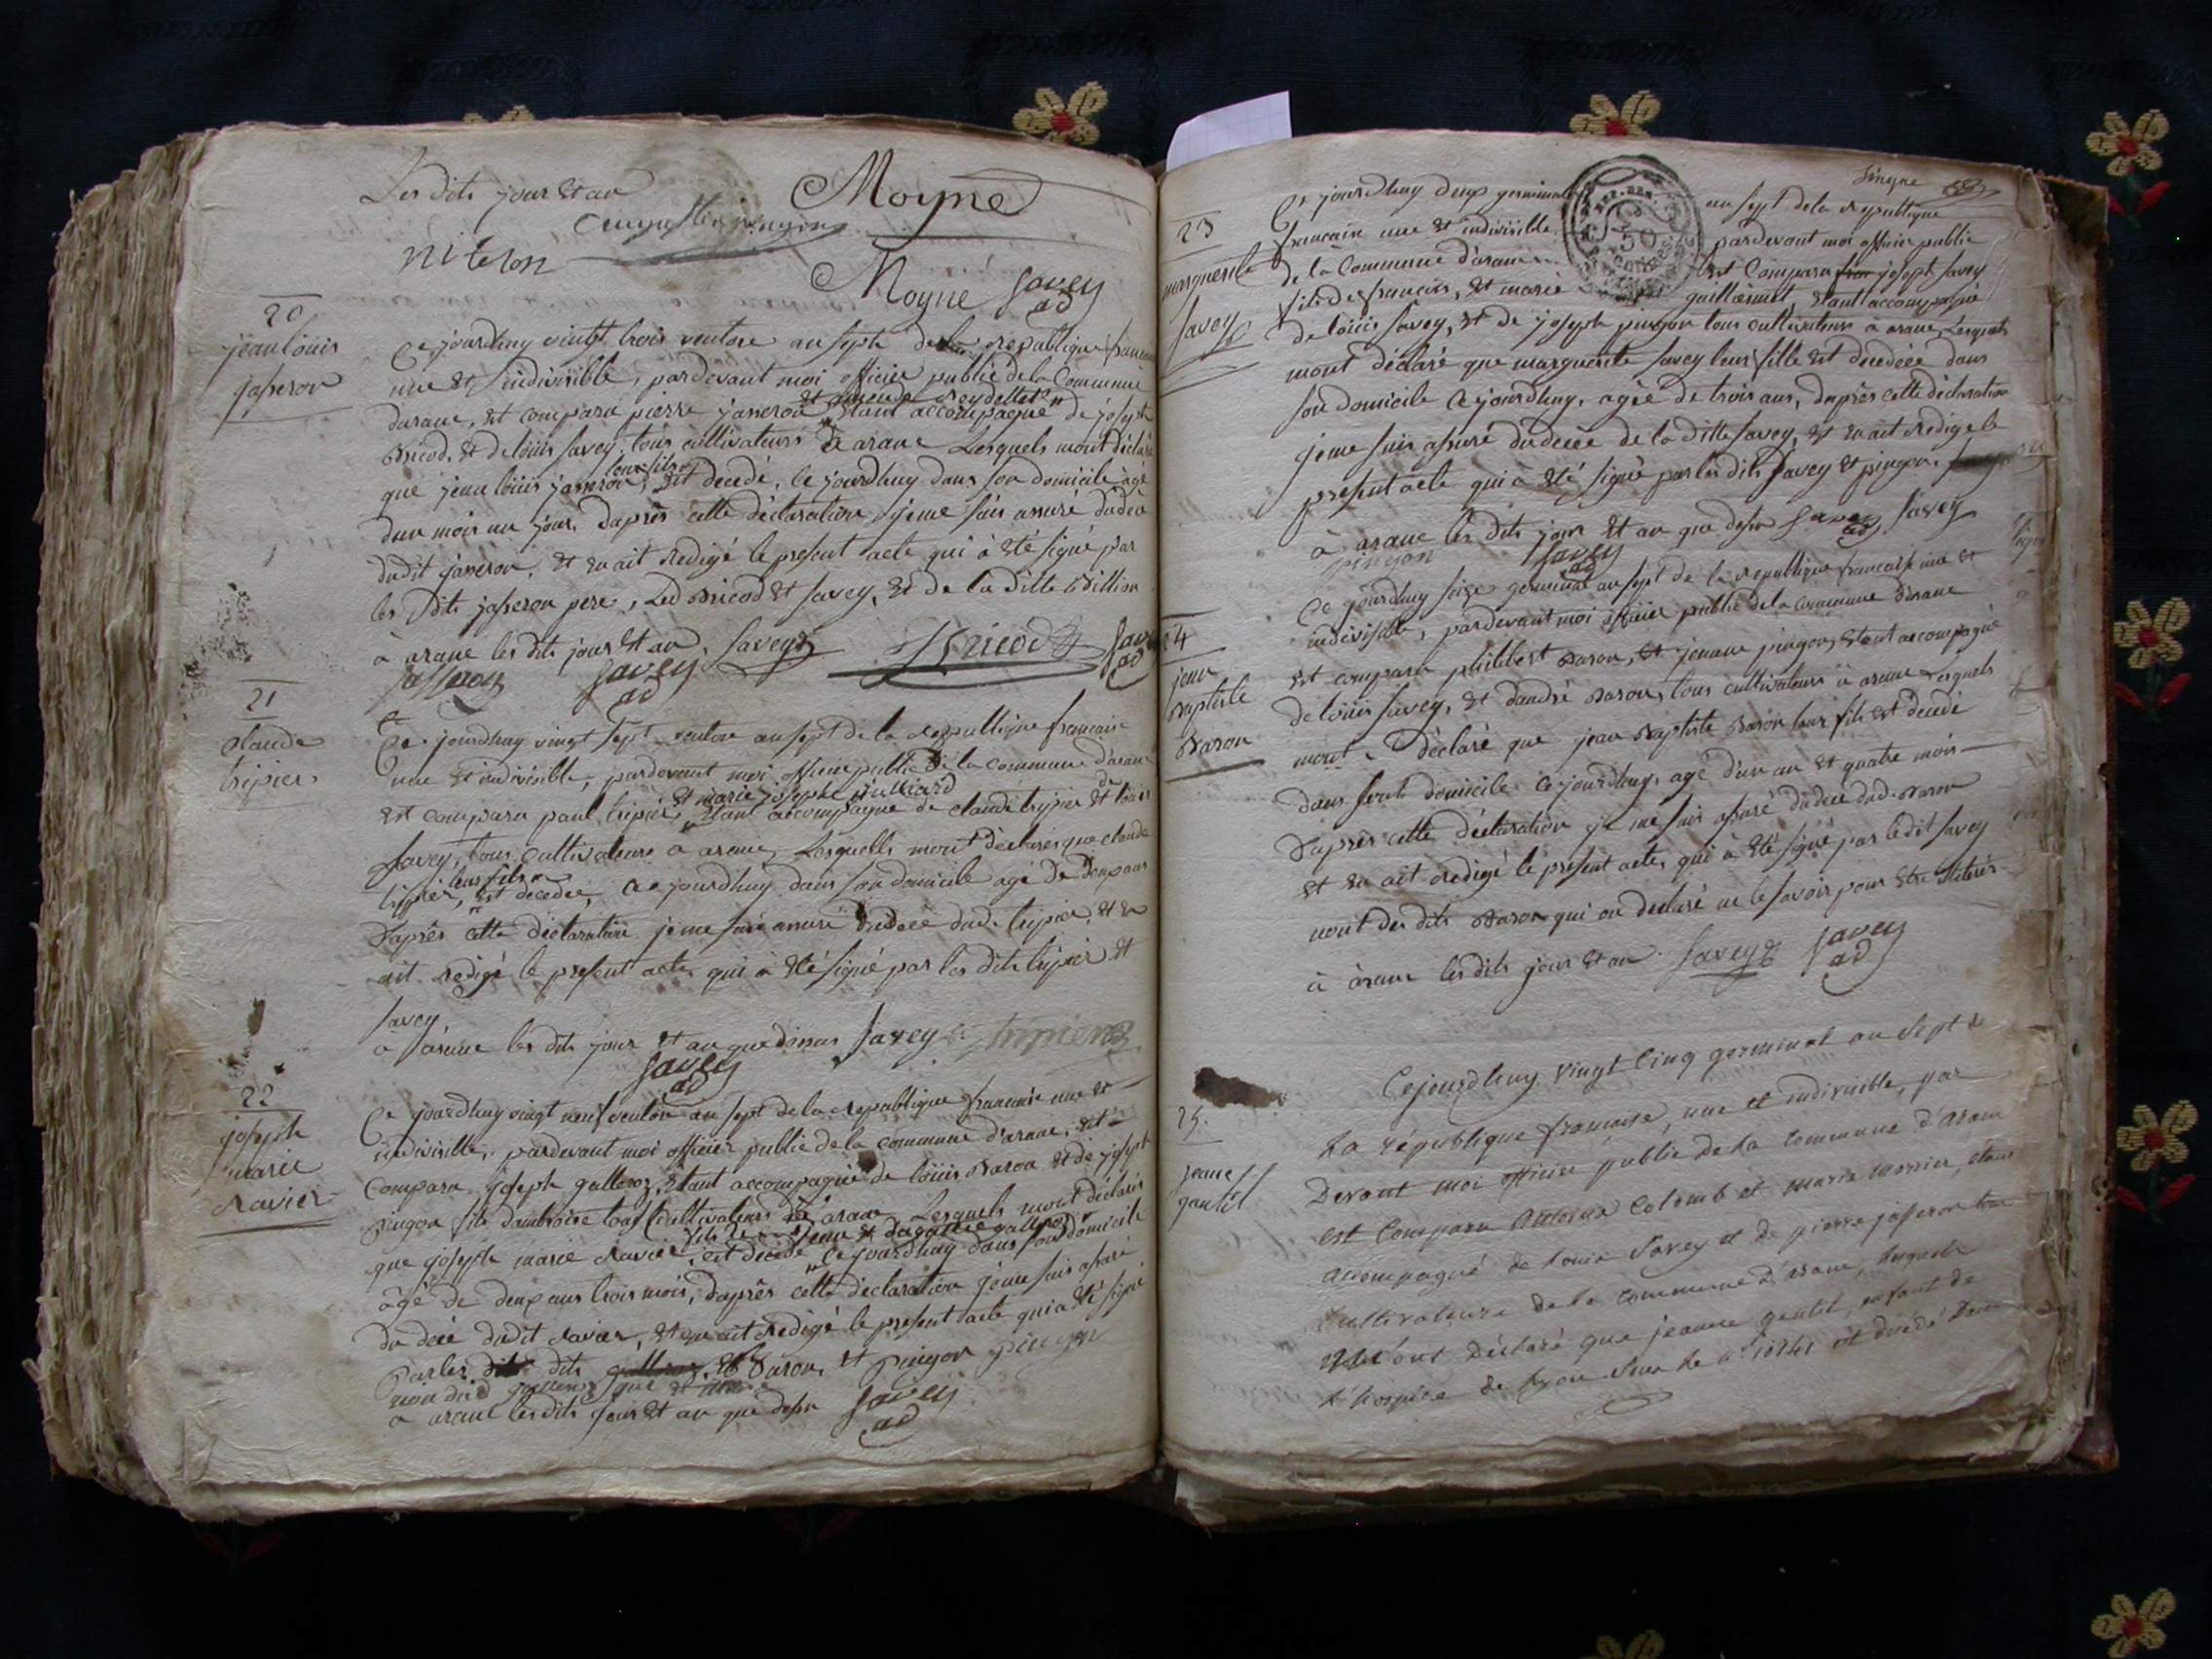 Les dits jour et an
Moyne
niteron
Moyne Savey
ad
20
jean louis
josseron
Ce jourdhuy vingt trois ventose an sept de la republique francaise
une et indivisible, pardevant moi officier public de la commune
darane, est comparu pierre josseron et reydellet étant accompagné de joseph
Bricod, et de louis Savey, tous cultivateurs à arane Lesquels mont déclaré
que jean louis josseron, leur fils est decedé, ce jourdhuy dans son domicile agé
dun mois un jour, daprès cette déclaration je me suis assuré du décè
dudit josseron, et en ait redigé le present acte qui à été signé par
les dits josseron pere, Led Bricod et Savey, et de la ditte
à arane les dits jours et an, Savey Bricod Savey
josseron Savey ad
ad
21
claude
tripier
Ce jourdhuy vingt sept ventose an sept de la republique francaise
une et indivisible, pardevant moi officier public de la commune d'arane
est comparu paul tripier, et marie josephe étant accompagné de claude tripier et de louis
Savey, tous cultivateurs à arane, Lesquells mont déclarés que claude
tripier, leur fils est decedée, ce jourdhuy dans son domicile agé de deux ans
d'après cette déclaration je me suis assuré du décè dud. tripier, et en
ait redigé le present acte qui à été signé par les dits tripier et
Savey
à arane les dits jour et an que dessus Savey tripier
Savey
ad
22
joseph
marie
ravier
Ce jourdhuy vingt neuf ventose an sept de la republique francaise une et
indivisible, pardevant moi officier public de la commune d'arane, est
comparu joseph galleroz, étant accompagné de louis Baron et de joseph
pingon fils dambroise tous cultivateurs à arane Lesquels mont déclarés
que joseph marie ravier, fils de jean et galleroz est decedé ce jourdhuy dans son domicile
agé de deux ans trois mois, daprès cette déclaration je me suis assuré
du décè dudit ravier, et en ait redigé le present acte qui a été signé
par les dits Baron, et pingon pingon
non dud
à arane les dits jour et an que dessu Savey
ad
23
marguerite
Savey
50
Ce jourdhuy deux germinal an sept de la republique
francaise une et indivisible, pardevant moi officier public
de la commune d'arane est comparu joseph Savey
fils de francois, et marie guillermet, étant accompagné
de louis Savey, et de joseph pingon tous cultivateurs à arane, Lesquels
mont déclaré que marguerite Savey leur fille est decedée dans
son domicile ce jourdhuy, agée de trois ans, daprès cette declaration
je me suis assuré du décè de la ditte Savey, et en ait redigé le
present acte qui à été signé par les dits Savey et pingon.
à arane les dits jour et an que dessu Savey Savey
pingon Savey
ad
24
jean
Baptiste
Baron
Ce jourdhuy seize germinal an sept de la republique francaise une et
indivisible, pardevant moi officier public de la commune d'arane
est comparu philibert Baron, et jeanne pingon, étant accompagné
de louis Savey, et dandré Baron, tous cultivateurs à arane Lesquels
mont déclaré que jean Baptiste Baron leur fils est decedé
dans leur domicile ce jourdhuy, agé d'un an et quatre mois
d'après cette déclaration je me suis assuré du décè dud. Baron
et en ait redigé le present acte, qui à été signé par ledit Savey
nont des dits Baron qui on declaré ne le savoir pour etre illiterés
à arane les dits jour et an. Savey Savey
ad
25.
jeanne
gentil
Cejourdhuy vingt cinq germinal an Sept de
la république française, une et indivisible, par
devant moi officier public de la commune d'arane
est comparu Antoine Colomb et marie monnier, étant
accompagné de Louis Savey et de pierre josseron tou
cultivateurs de la commune d'arane, lesquels
ont déclaré que jeanne gentil, enfant de
l'hospice de Lyon est décédé dans